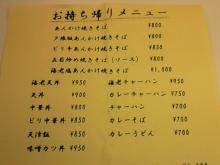 お持ち帰りメニュー
あんかけ焼きそば ¥800
夕張飯あんかけ焼きそば ¥850
ピリ辛あんかけ焼きそば ¥850
五目炒め焼きそば(ソース) ¥800
海老塩あんかけ焼きそば ¥1,000
海老天丼 ¥950
海老チャーハン ¥950
天丼 ¥900
カレーチャーハン ¥750
中華丼 ¥800
チャーハン ¥700
ピリ中華丼 ¥850
カレーそば ¥700
天津飯 ¥850
カレーうどん ¥700
味噌カツ丼 ¥950